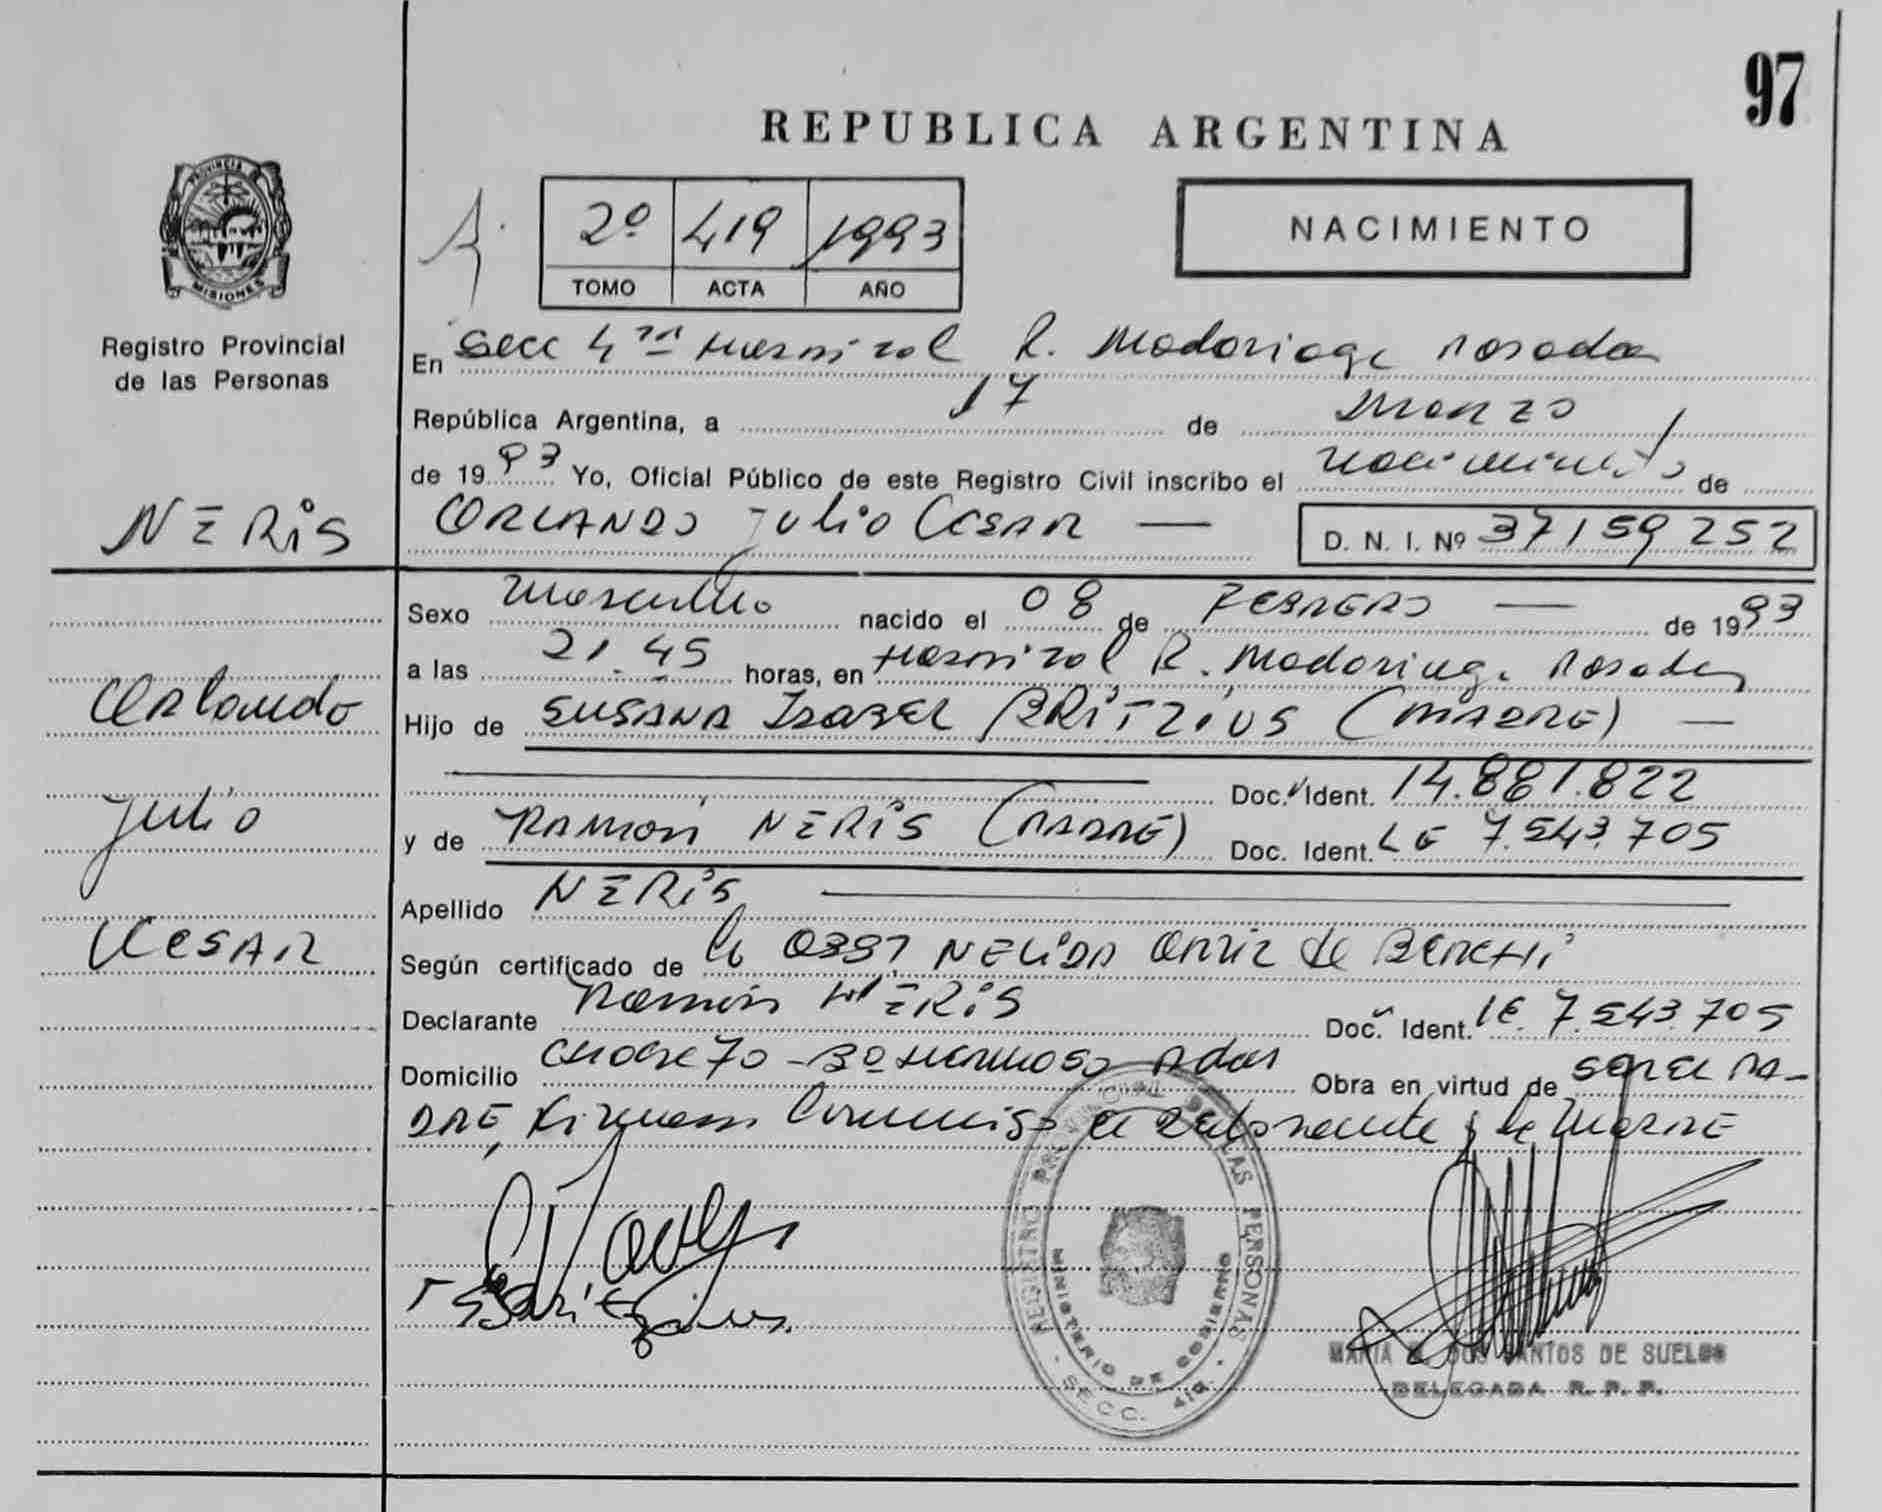 97
REPUBLICA ARGENTINA
PROVINCIA DE
MISIONES
Registro Provincial
de las Personas
2º 419 1993
TOMO ACTA AÑO
NACIMIENTO
En Secc 4ta Hospital R. Madariaga Posadas
República Argentina, a 17 de Marzo
de 1993 Yo, Oficial Público de este Registro Civil inscribo el nacimiento de
NERIS
ORLANDO Julio CESAR —
D. N. I. Nº 37159252
Sexo Masculino nacido el 08 de FEBRERO — de 1993
a las 21.45 horas, en Hospital R. Madariaga. Posadas
Orlando
Hijo de SUSANA ISABEL BRITZIUS (MADRE) —
Doc. Ident. 14.881.822
Julio
y de RAMON NERIS (PADRE) Doc. Ident. LE 7.543.705
Apellido NERIS
CESAR
Según certificado de la NELIDA ORTIZ de
Declarante Ramón NERIS Doc. Ident. LE. 7.543.705
Domicilio 70 - Bº Hermoso Pdas Obra en virtud de SER EL PA-
DRE, Firman Conmigo el declarante y la MADRE
REGISTRO PROVINCIAL DE LAS PERSONAS
MINISTERIO DE GOBIERNO
SECC. 4ta.
MARIA DOS SANTOS DE SUELDO
DELEGADA R. P. P.